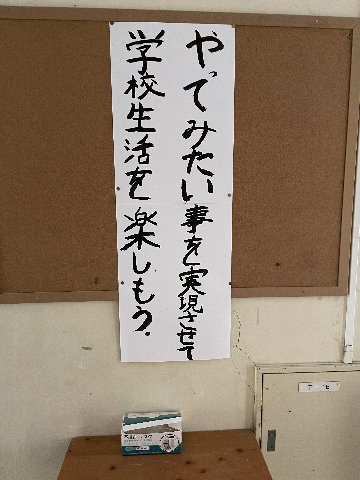 やってみたい事を実現させて
学校生活を楽しもう。